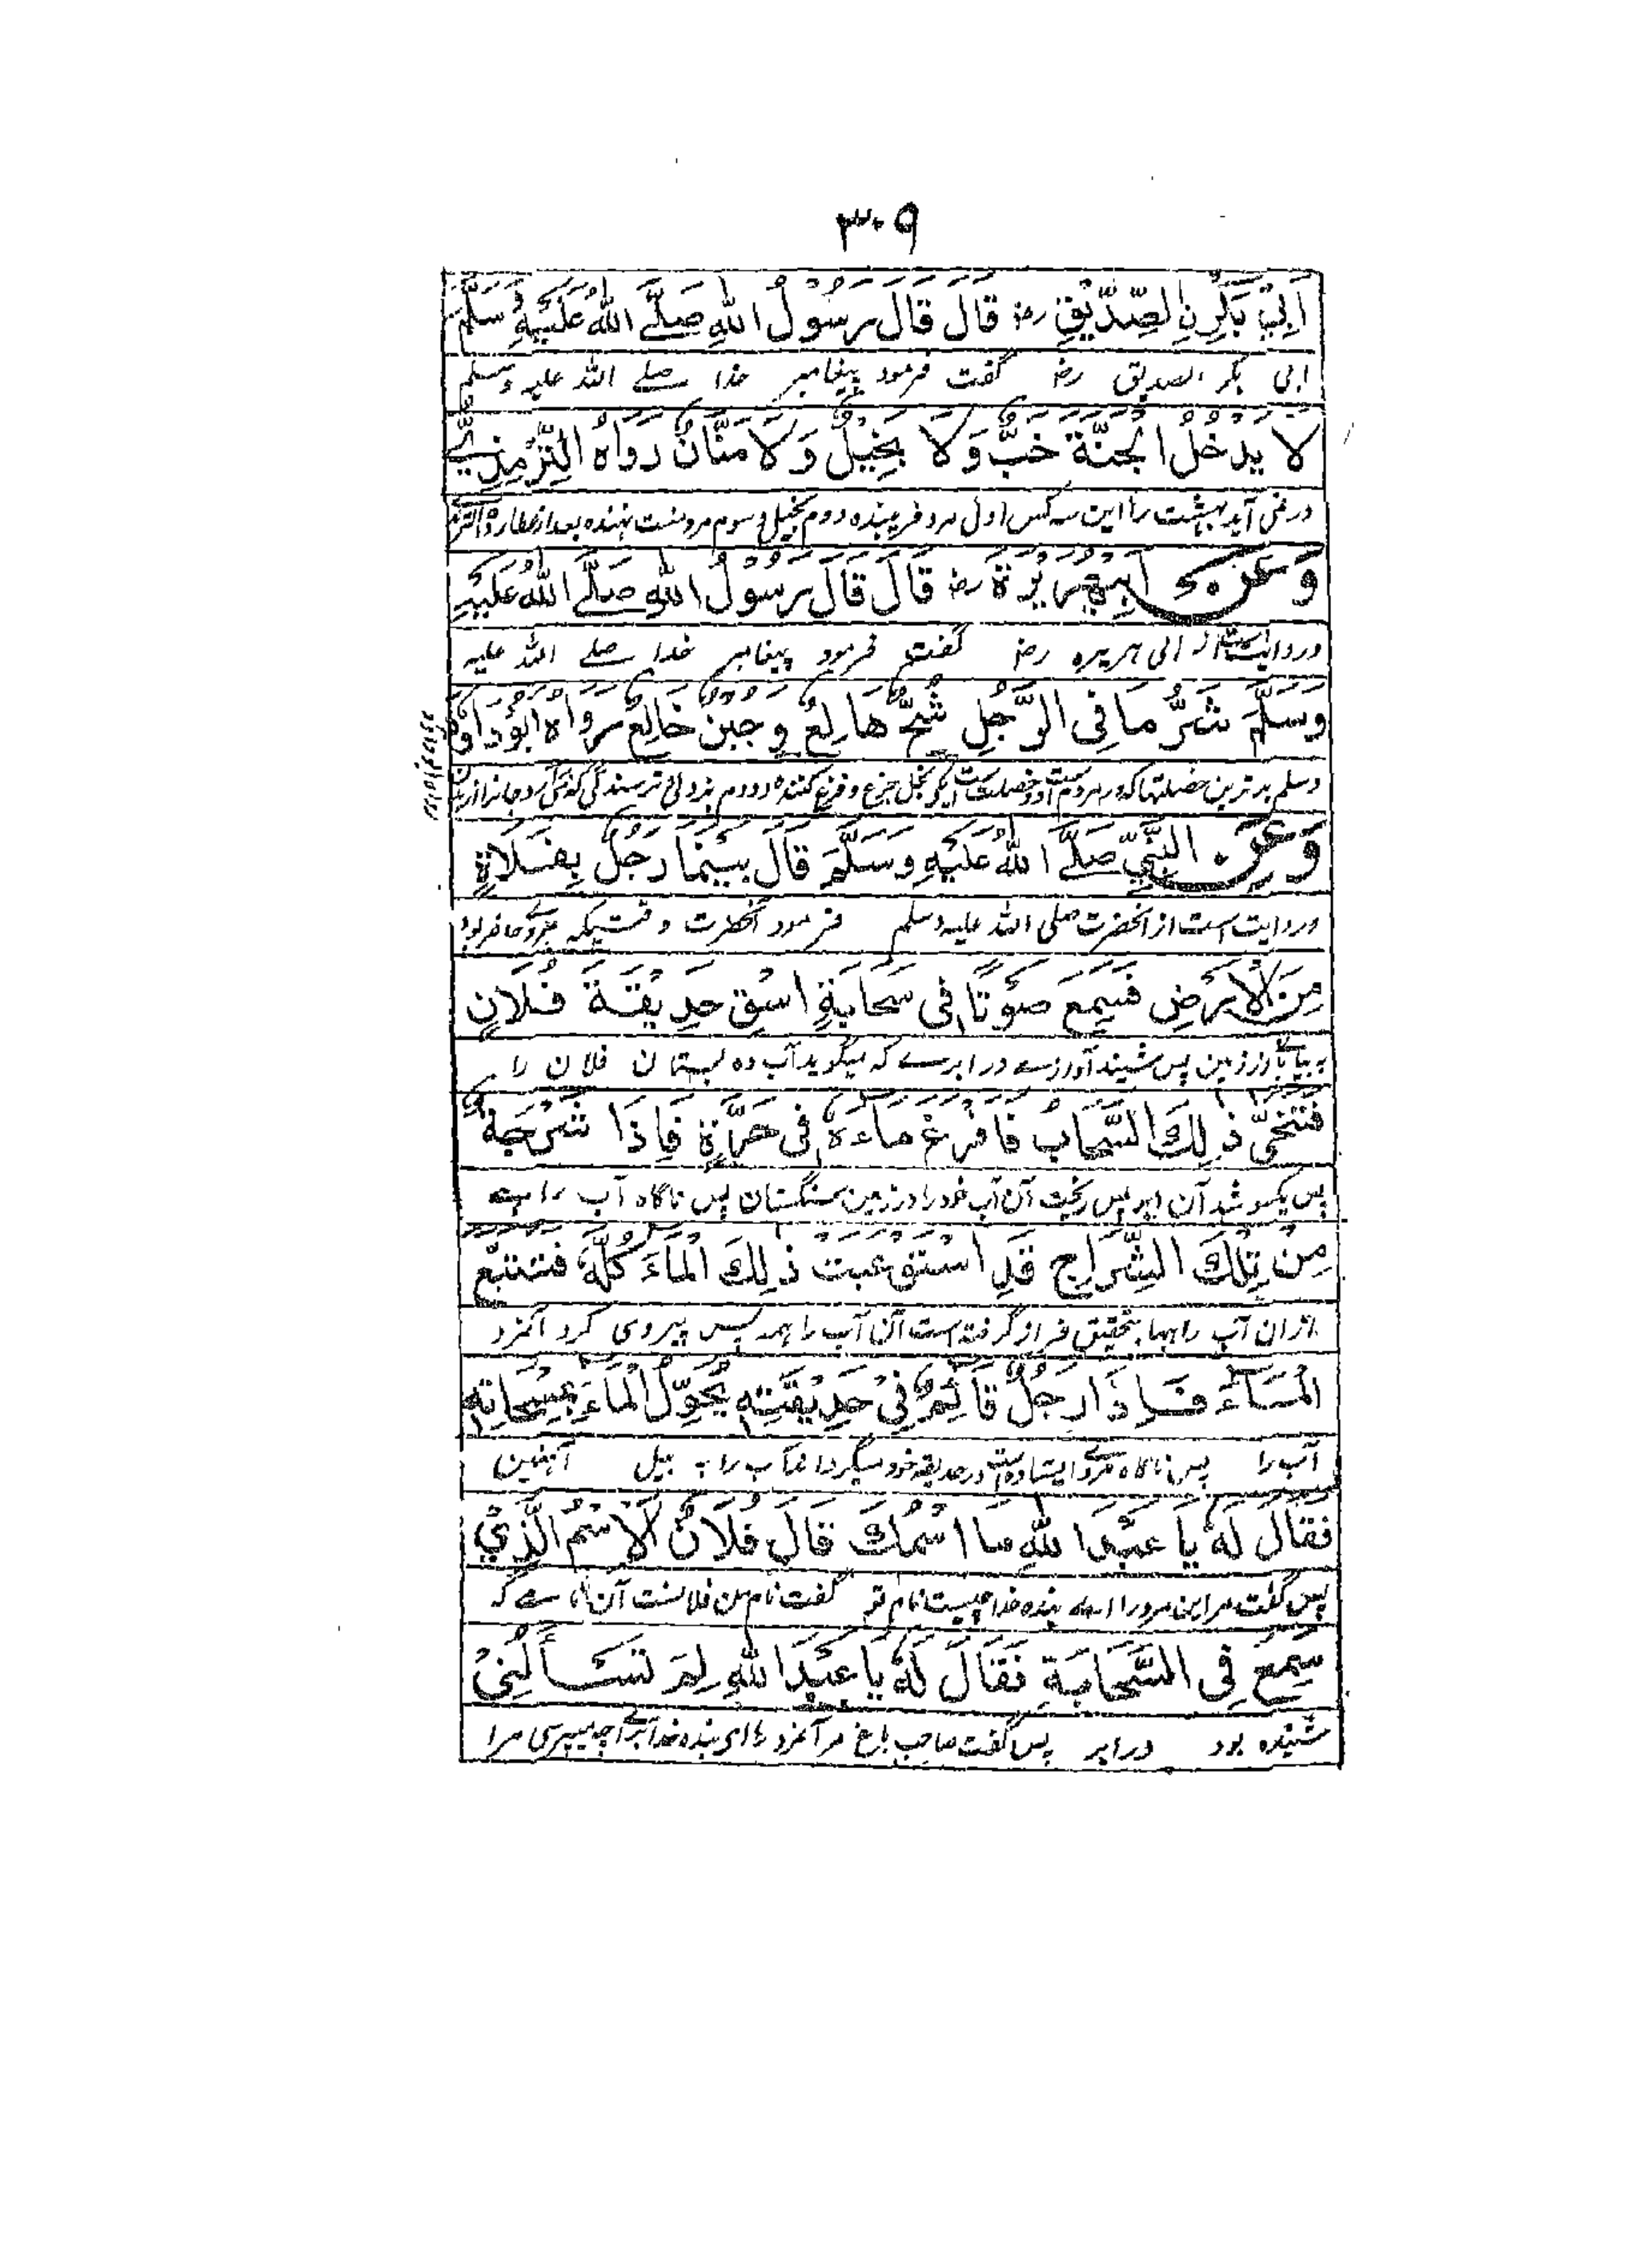 ۳۰۹
اَبِيْ بَكْرِنِ الصِّدِّيْقِ رض قَالَ قَالَ رَسُوْلُ اللهِ صَلَّے اللهُ عَلَيْهِ وَسَلَّمَ
ابی بکر الصدیق رض گفت فرمود پیغامبر خدا صلے اللہ علیہ وسلم
لَا يَدْخُلُ الْجَنَّةَ خَبٌّ وَلَا بَخِيْلٌ وَلَا مَنَّانٌ رَوَاهُ التِّرْمِذِيُّ
در نمی آید بہشت را این سہ کس اول مرد فریبندہ دوم بخیل و سوم مرد منت نہندہ بعد از عطا
وَعَنْ اَبِيْ هُرَيْرَةَ رض قَالَ قَالَ رَسُوْلُ اللهِ صَلَّے اللهُ عَلَيْهِ
و روایت است از ابی ہریرہ رض گفت فرمود پیغامبر خدا صلے اللہ علیہ
وَسَلَّمَ شَرُّ مَا فِي الرَّجُلِ شُحٌّ هَالِعٌ وَجُبْنٌ خَالِعٌ رَوَاهُ اَبُوْدَاوٗدَ
وسلم بدترین خصلتها کہ در مردم است دو خصلت است یکے بخل جزع و فزع کنندہ و دوم بزدلی ترسندگی
وَعَنِ النَّبِيِّ صَلَّے اللهُ عَلَيْهِ وَسَلَّمَ قَالَ بَيْنَمَا رَجُلٌ بِفَلَاةٍ
و روایت است از آنحضرت صلی اللہ علیہ وسلم فرمود آنحضرت وقتیکہ مردے
مِنَ الْاَرْضِ فَسَمِعَ صَوْتًا فِي سَحَابَةٍ اسْقِ حَدِيْقَةَ فُلَانٍ
از زمین پس شنید آوازے در ابرے کہ میگوید آب دہ بستان فلان را
فَتَنَحّٰى ذٰلِكَ السَّحَابُ فَافْرَغَ مَاءَهٗ فِي حَرَّةٍ فَاِذَا شَرْجَةٌ
پس یکسو شد آن ابر پس ریخت آن آب خود را در زمین سنگستان پس ناگاہ آب راہے
مِنْ تِلْكَ الشِّرَاجِ قَدِ اسْتَوْعَبَتْ ذٰلِكَ الْمَاءَ كُلَّهٗ فَتَتَبَّعَ
از ان آب راہہا بتحقیق فراز گرفتہ است آن آب را ہمہ پس پیروی کرد آنمرد
الْمَاءَ فَاِذَا رَجُلٌ قَائِمٌ فِيْ حَدِيْقَتِهٖ يُحَوِّلُ الْمَاءَ بِمِسْحَاتِهٖ
آب را پس ناگاہ مردے ایستادہ است در حدیقہ خود میگرداند آب را بہ بیل آہنین
فَقَالَ لَهٗ يَا عَبْدَ اللهِ مَا اسْمُكَ قَالَ فُلَانُ الْاِسْمُ الَّذِيْ
پس گفت مر این مرد را اے بندہ خدا چیست نام تو گفت نام من فلانست آن نامے کہ
سَمِعَ فِي السَّحَابَةِ فَقَالَ لَهٗ يَا عَبْدَ اللهِ لِمَ تَسْأَلُنِيْ
شنیدہ بود در ابر پس گفت صاحب باغ مر آنمرد را ای بندہ خدا برائے چہ میپرسی مرا